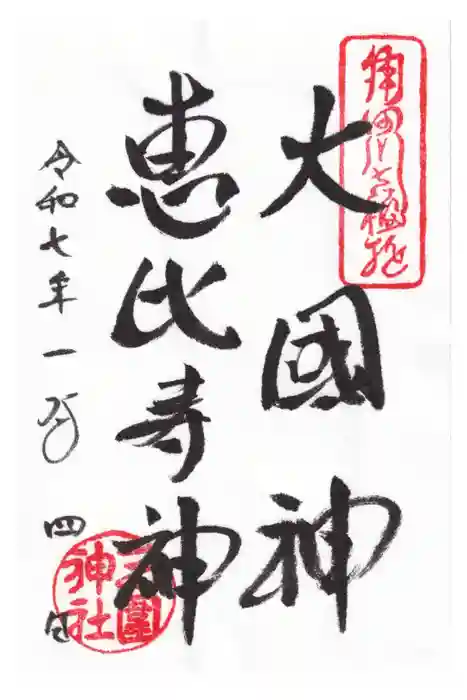 隅田川七福神
大國神
恵比寿神
令和七年一月四日
三囲神社